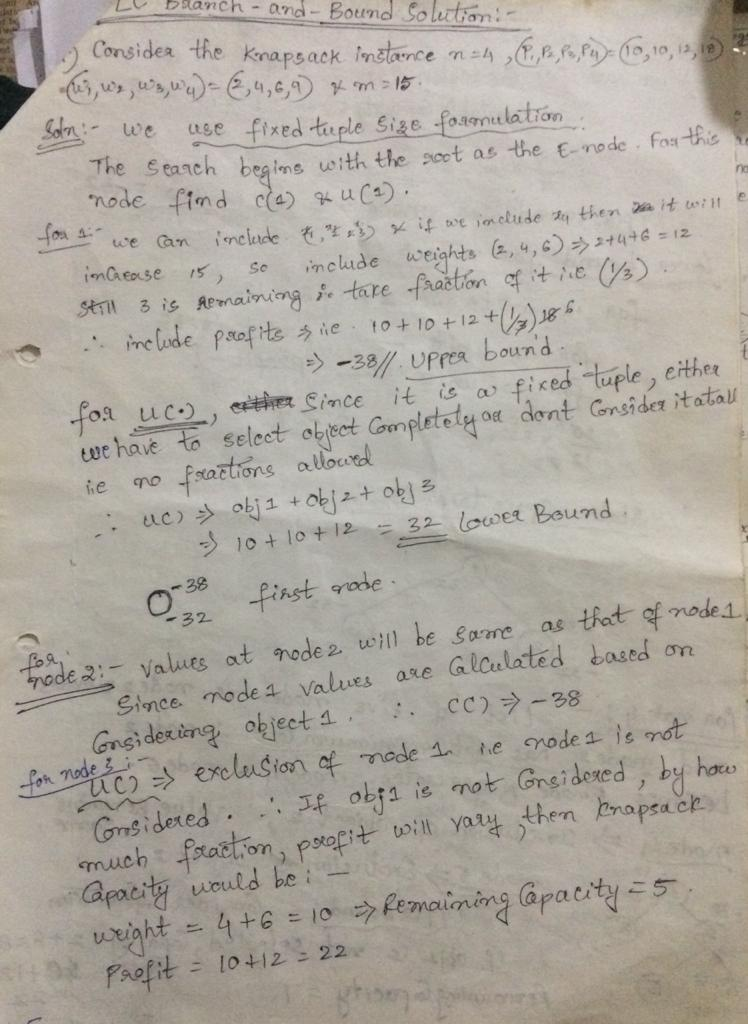 LC Branch-and-Bound Solution:-
) Consider the Knapsack instance n=4, (P1, P2, P3, P4)=(10,10,12,18)
(w1, w2, w3, w4)=(2,4,6,9) & m=15.
Soln:- we use fixed tuple size formulation.
The Search begins with the root as the E-node. For this
node find c(1) & u(1).
for 1:- we can include & if we include x4 then it will
increase 15, so include weights (2,4,6) ⇒ 2+4+6=12
Still 3 is remaining ∴ take fraction of it i.e (1/3).
∴ include profits ⇒ ie. 10+10+12+(1/3)18 6
⇒ -38// Upper bound.
for u(.), either Since it is a fixed tuple, either
we have to select object Completely or dont Consider it atall
ie no fractions allowed
∴ u() ⇒ obj 1 + obj 2 + obj 3
⇒ 10+10+12 = 32 Lower Bound.
-38
-32 first node.
for node 2:- values at node 2 will be same as that of node 1
Since node 1 values are Calculated based on
Considering object 1. ∴ C() ⇒ -38
for node 3:-
u() ⇒ exclusion of node 1 i.e node 1 is not
Considered. ∴ If obj 1 is not Considered, by how
much fraction, profit will vary, then Knapsack
Capacity would be:-
weight = 4+6 = 10 ⇒ Remaining Capacity = 5.
Profit = 10+12 = 22